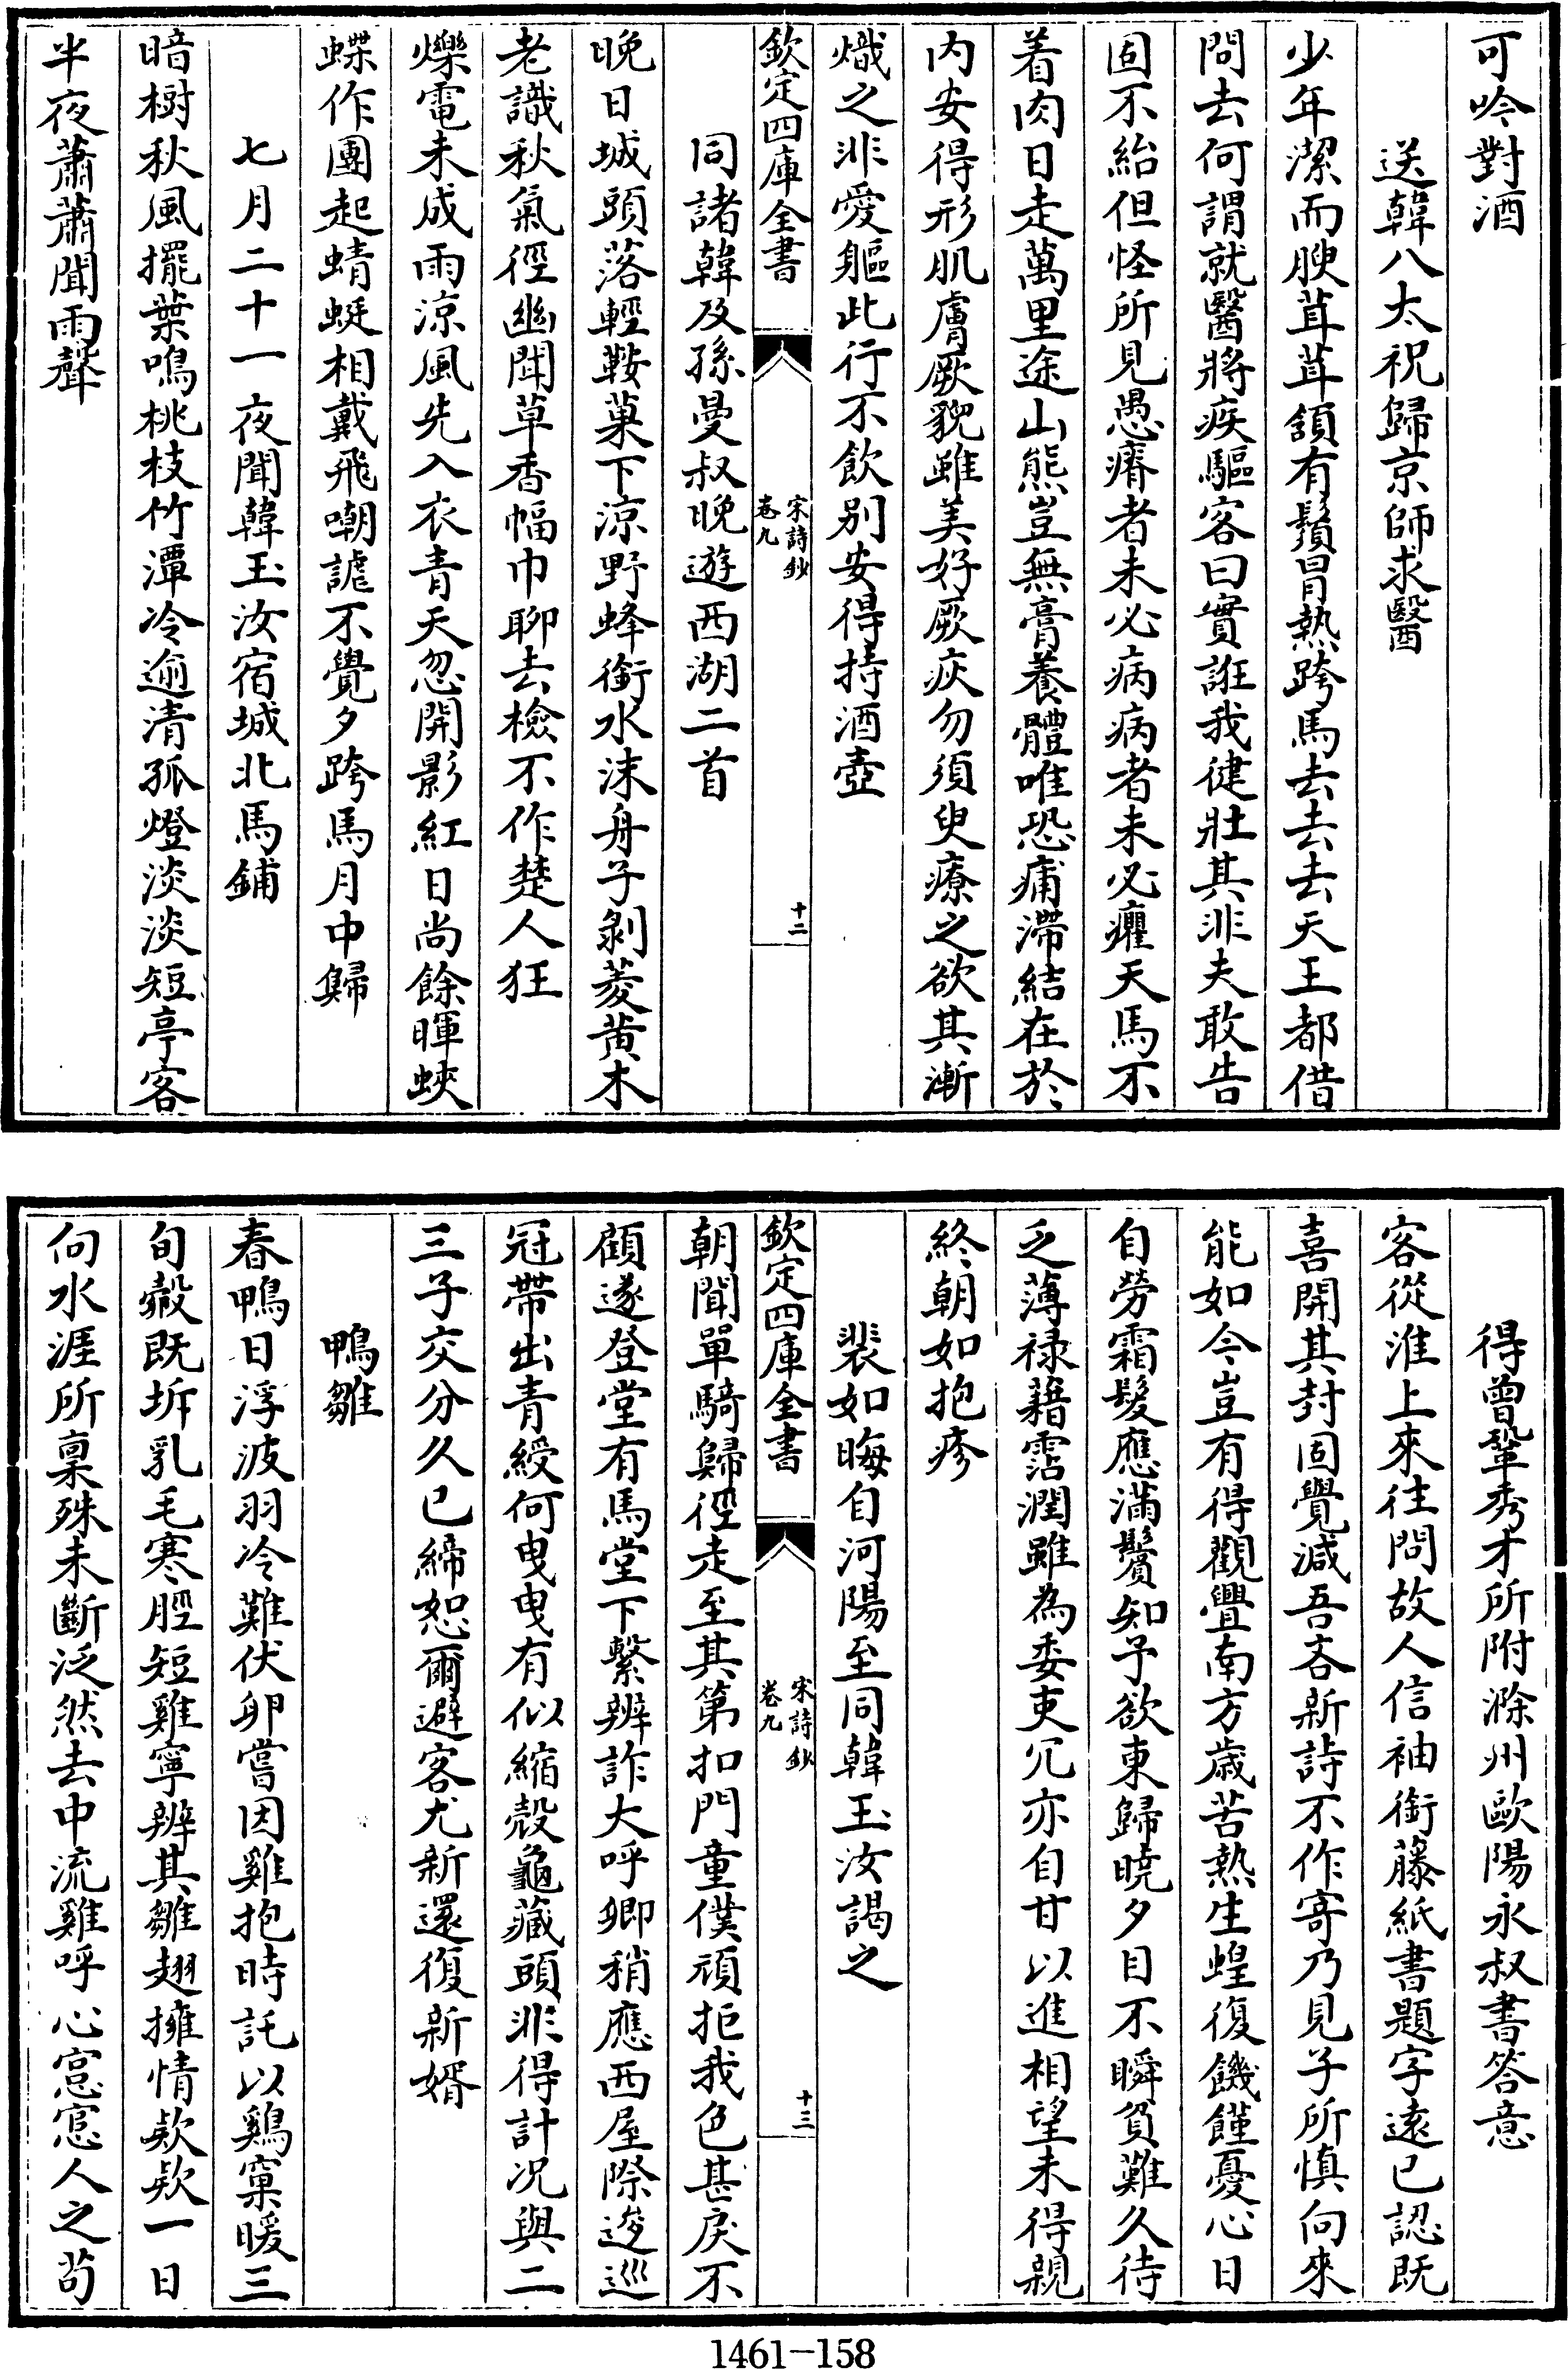 可吟對酒
送韓八太祝歸京師求醫
少年潔而腴茸茸頷有鬚冒熱跨馬去去去天王都借
問去何謂就醫將疾驅客曰實誑我健壯其非夫敢告
固不紿但怪所見愚瘠者未必病病者未必癯天馬不
着肉日走萬里途山熊豈無膏養體唯恐痡滯結在於
内安得形肌膚厥貌雖美好厥疢勿須臾療之欲其漸
熾之非愛軀此行不飲别安得持酒壺
欽定四庫全書
宋詩鈔
卷九
十二
同諸韓及孫曼叔晚遊西湖二首
晚日城頭落輕鞍菓下涼野蜂銜水沫舟子剝菱黄木
老識秋氣徑幽聞草香幅巾聊去檢不作楚人狂
爍電未成雨涼風先入衣青天忽開影紅日尚餘暉蛺
蝶作團起蜻蜓相戴飛嘲謔不覺夕跨馬月中歸
七月二十一夜聞韓玉汝宿城北馬鋪
暗樹秋風擺葉鳴桃枝竹潭冷逾清孤燈淡淡短亭客
半夜蕭蕭聞雨聲
得曾鞏秀才所附滁州歐陽永叔書答意
客從淮上來往問故人信袖銜藤紙書題字遠已認既
喜開其封固覺減吾吝新詩不作寄乃見子所慎向來
能如今豈有得觀舋南方歲苦熱生蝗復饑饉憂心日
自勞霜髮應滿鬢知予欲東歸曉夕目不瞬貧難久待
乏薄禄藉霑潤雖為委吏冗亦自甘以進相望未得親
終朝如抱疹
裴如晦自河陽至同韓玉汝謁之
欽定四庫全書
宋詩鈔
卷九
十三
朝聞單騎歸徑走至其第扣門童僕頑拒我色甚戾不
顧遂登堂有馬堂下繫辨詐大呼卿稍應西屋際逡巡
冠帶出青綬何曳曳有似縮殻龜藏頭非得計况與二
三子交分久已締恕爾避客尤新還復新婿
鴨雛
春鴨日浮波羽冷難伏卵嘗因雞抱時託以鷄窠暖三
旬㲉既坼乳毛寒脛短雞寧辨其雛翅擁情欵欵一日
向水涯所稟殊未斷泛然去中流雞呼心悹悹人之苟
1461-158